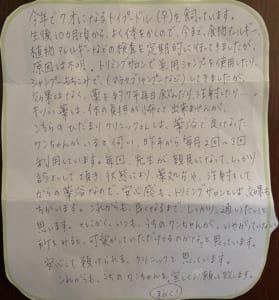 今年で9才になるトイプードル(♀)を飼っています。
生後10ヵ月頃から、よく体をかくので、今まで、食物アレルギー、
植物アレルギーなどの検査を定期的に行ってきましたが、
原因は不明。トリミングサロンで薬用シャンプーを使用したり、
シャンプーをあちこちで、(まゆつばシャンプーなど)してきましたが、
効果はなく、薬を約7年毎日飲んだり、注射したり…。
キツい薬は、体の負担が怖くて出来ませんが、
こちらのひだまりクリニックさんは、薬浴で良くなった
ワンちゃんがいると伺い、昨年から毎月2回〜3回
利用しています。毎回、先生が親身になって、しっかり
診まして頂き、状態により、薬処方や、注射をして
からの薬浴なので、安心感も、トリミングサロンとは、効果も
ちがいます。これからも、良くなるまで、しっかり、通いたいと
思います。とにかく、いつも、うちのワンちゃんが、いやがっていない
所をみると、可愛がっていただけてるのかな?と思っています。
安心して頼けられる、クリニックと思っています。
これからも、うちのワンちゃんを宜しくお願い致します。